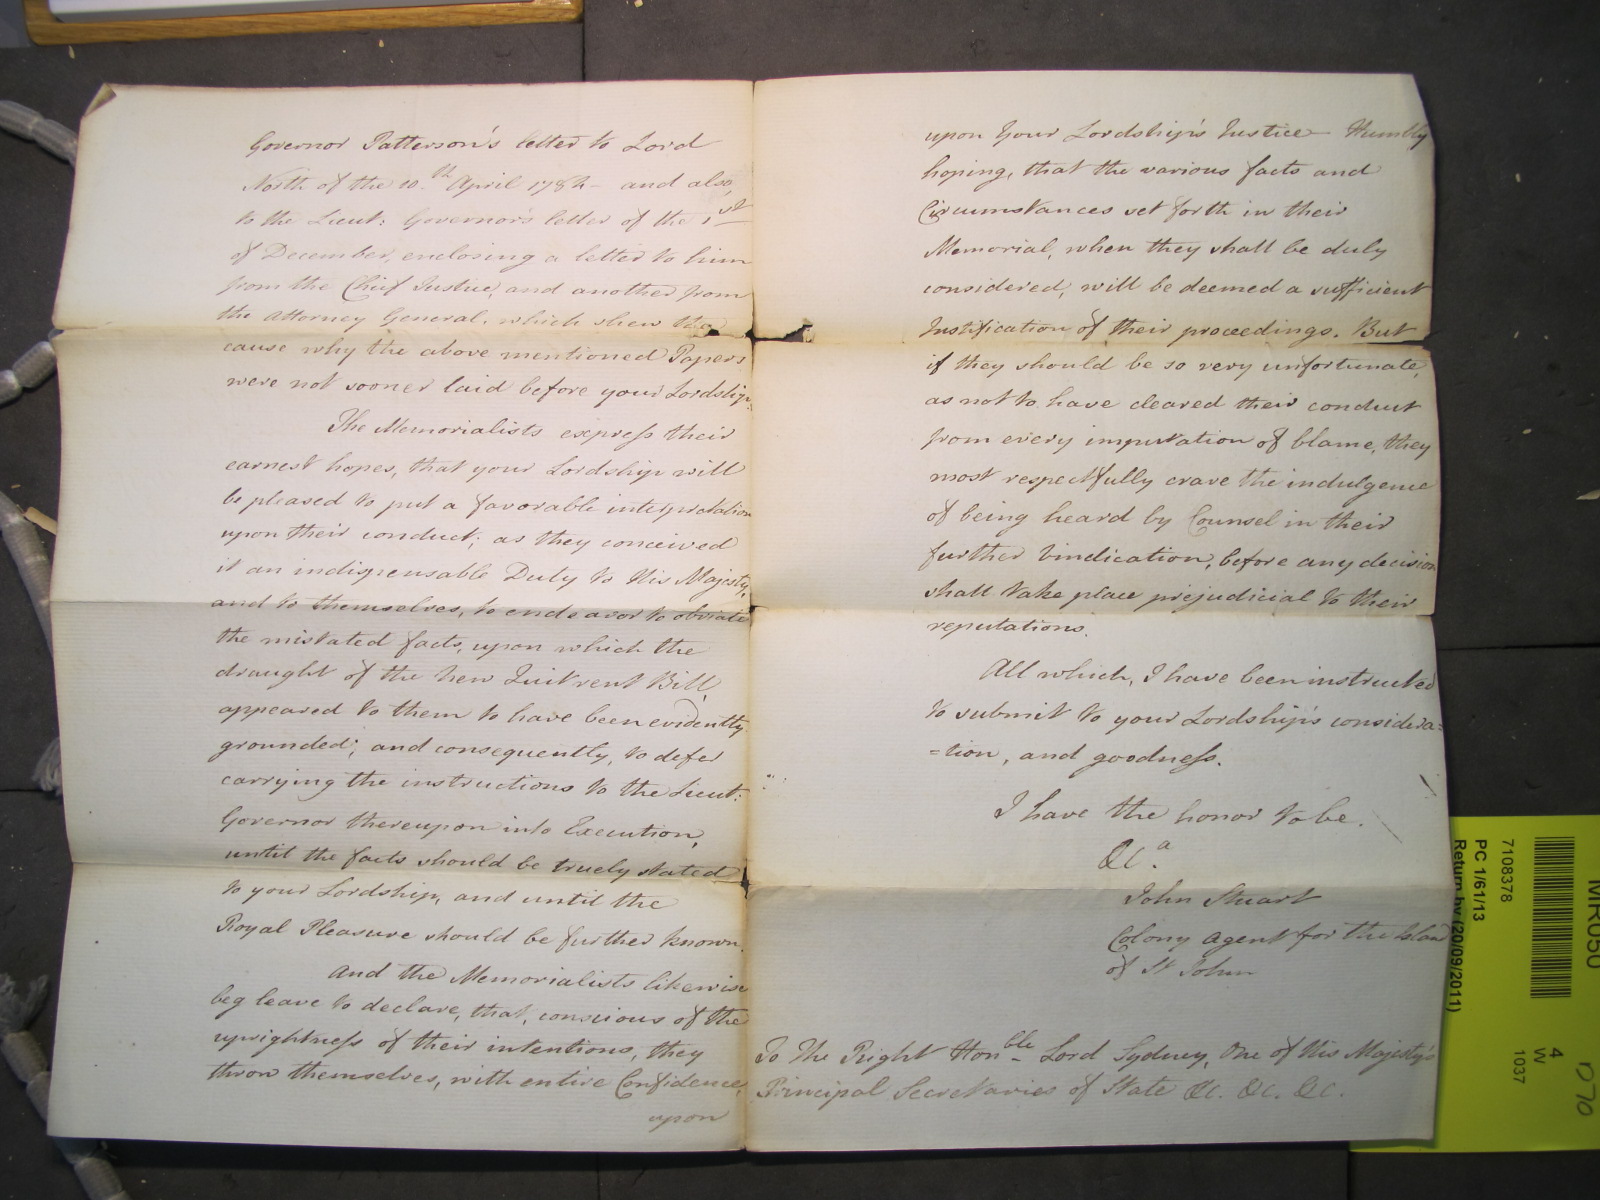 Governor Patterson's letter to Lord
North of the 10.th April 1784 - and also,
to the Lieut: Governor's letter of the 1st
of December, enclosing a letter to him
from the Chief Justice, and another from
the Attorney General, which shew the
cause why the above mentioned Papers
were not sooner laid before your Lordship.
The Memorialists express their
earnest hopes, that your Lordship will
be pleased to put a favorable interpretation
upon their conduct; as they conceived
it an indispensable Duty to His Majesty,
and to themselves, to endeavor to obviate
the mistated facts, upon which the
draught of the new Quitrent Bill,
appeared to them to have been evidently
grounded; and consequently, to defer
carrying the instructions to the Lieut:
Governor thereupon into Execution,
until the facts should be truely stated
to your Lordship, and until the
Royal Pleasure should be further known.
And the Memorialists likewise
beg leave to declare, that, conscious of the
uprightness of their intentions, they
throw themselves, with entire Confidence,
upon
upon Your Lordship's Justice - Humbly
hoping, that the various facts and
Circumstances set forth in their
Memorial, when they shall be duly
considered, will be deemed a sufficient
Justification of their proceedings. But
if they should be so very unfortunate,
as not to have cleared their conduct
from every imputation of blame, they
most respectfully crave the indulgence
of being heard by Counsel in their
further Vindication, before any decision
shall take place prejudicial to their
reputations.
All which, I have been instructed
to submit to your Lordship's considera=
=tion, and goodness.
I have the honor to be.
&c.a
John Stuart
Colony Agent for the Island
of St John
To The Right Honble Lord Sydney, One of His Majesty's
Principal Secretaries of State &c. &c. &c.
7108378
PC 1/61/13
Return by (20/09/2011)
MR050
4
W
1037
D70